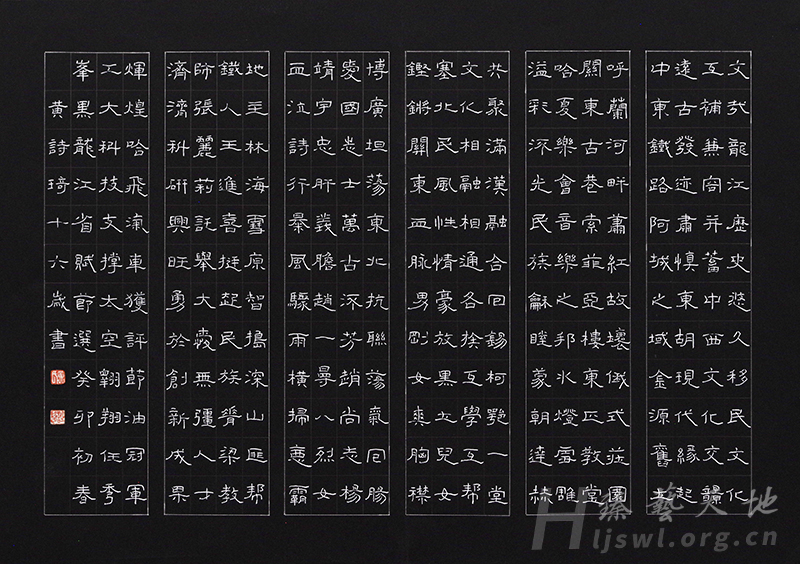 文哉龍江歷史悠久移民文化
互補兼容并蓄中西文化交融
遠古發迹肅慎東胡現代緣起
中東鐵路阿城之域金源舊
呼蘭河畔蕭紅故壞儀式莊園
關東古巷索菲亞樓東正教堂
哈夏樂會音樂之邦冰燈雪雕
溢彩流光民族龢睦蒙朝達赫
共聚滿漢融合回錫柯鄂一堂
文化相融相通各族互學互幫
塞北民風性情豪放黑土兒女
鏗鏘關東血脉男剛女爽胸襟
博廣坦蕩東北抗聯蕩氣回腸
愛國志士萬古流芳趙尚志楊
靖宇忠肝義膽趙一曼八烈女
血泣詩行暴風驟雨橫掃惡霸
地主林海雪原智搗深山匪幫
鐵人王進喜挺起民族脊梁教
師張麗莉託舉大愛無疆人士
濟濟科研興旺勇於創新成果
輝煌哈飛汽車獲評節油冠軍
工大科技支撐太空翱翔任秀
峯黑龍江省賦節選癸卯初春
黃詩琦十六歲書
臻藝天地
Hljswl.org.cn